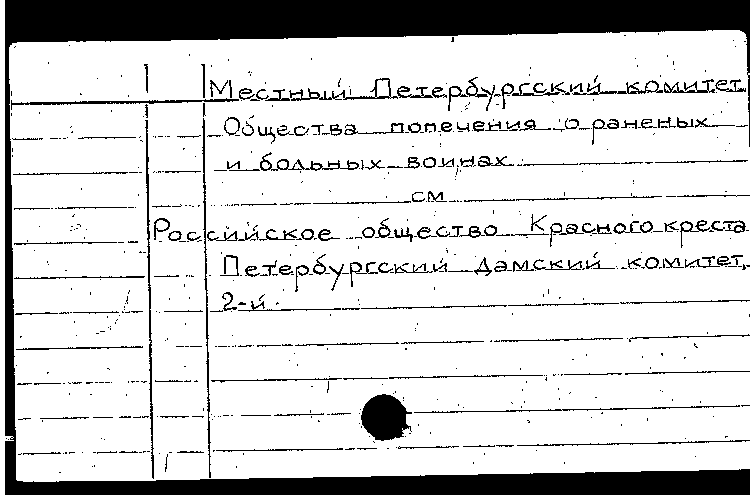 Местный Петербургский комитет
Общества попечения о раненых
и больных воинах
см
Российское общество Красного креста
Петербургский дамский комитет,
2-й.